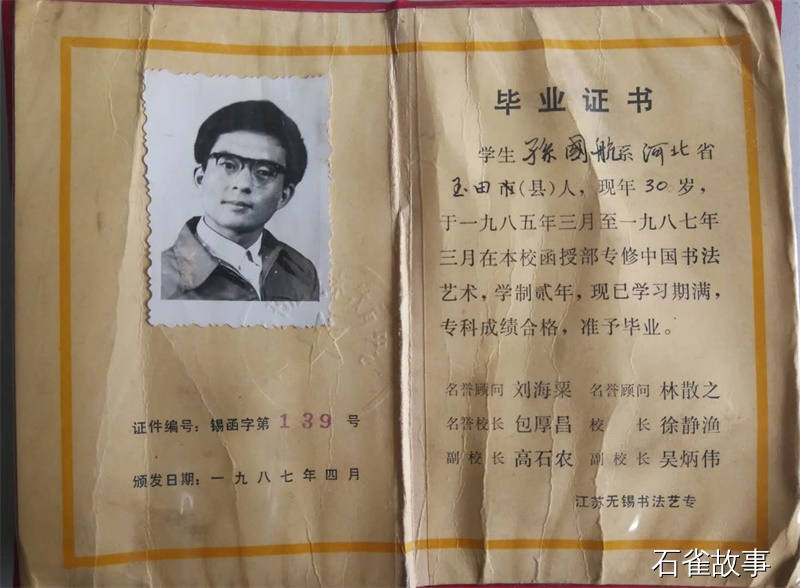 证件编号：锡函字第139号
颁发日期：一九八七年四月
毕业证书
学生孫國航系河北省
玉田市（县）人，现年30岁，
于一九八五年三月至一九八七年
三月在本校函授部专修中国书法
艺术，学制贰年，现已学习期满，
专科成绩合格，准予毕业。
名誉顾问 刘海粟 名誉顾问 林散之
名誉校长 包厚昌 校长 徐静渔
副校长 高石农 副校长 吴炳伟
江苏无锡书法艺专
石雀故事